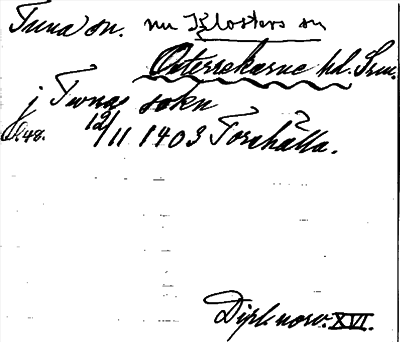 Tuna sn. nu Klosters sn
Österrekarne hd. Srm.
j Twnæ sokn
12/11 1403 Torshälla.
Dipl norv. XVI.